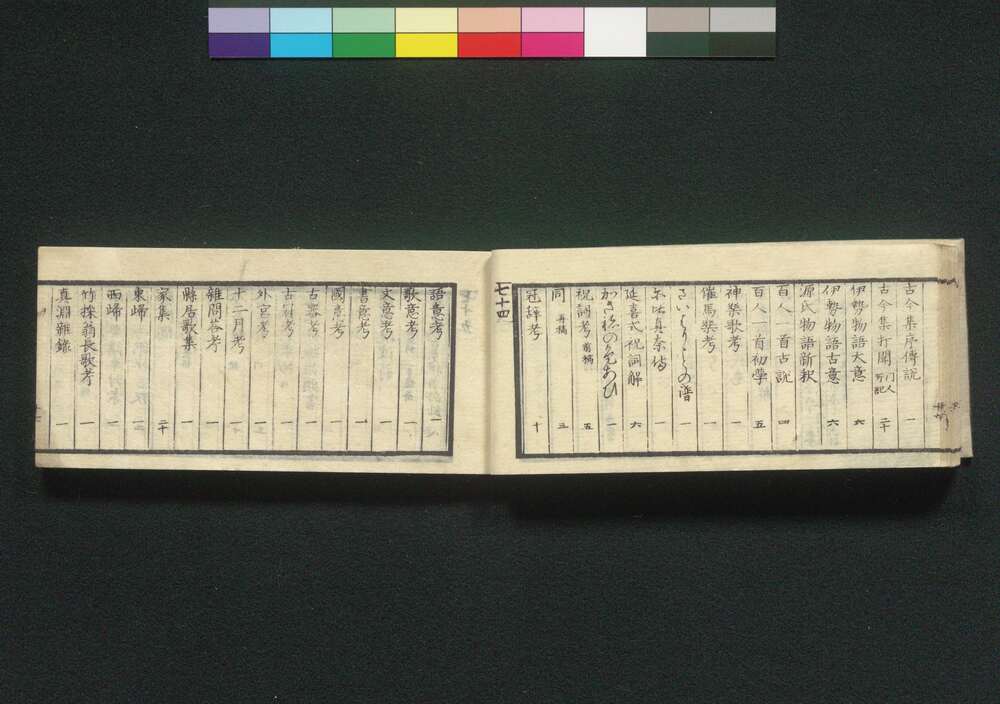 古今集序傳説 一
古今集打聞 門人 野記 二十
伊勢物語大意 六
伊勢物語古意 六
源氏物語新釈
百人一首古説 四
百人一首初學 五
神樂歌考 一
催馬樂考 一
さいばらの譜 一
一
延喜式祝詞解 六
一
祝詞考 前稿 五
同 再稿 三
冠辞考 十
七十四
語意考 一
歌意考 一
文意考 一
書意考 一
國意考 一
古器考 一
古冠考 一
外宮考 一
十二月考 一
雜問答考 一
縣居歌集 一
家集 二十
東歸 一
西歸 一
竹採翁長歌考 一
真淵雜録 一